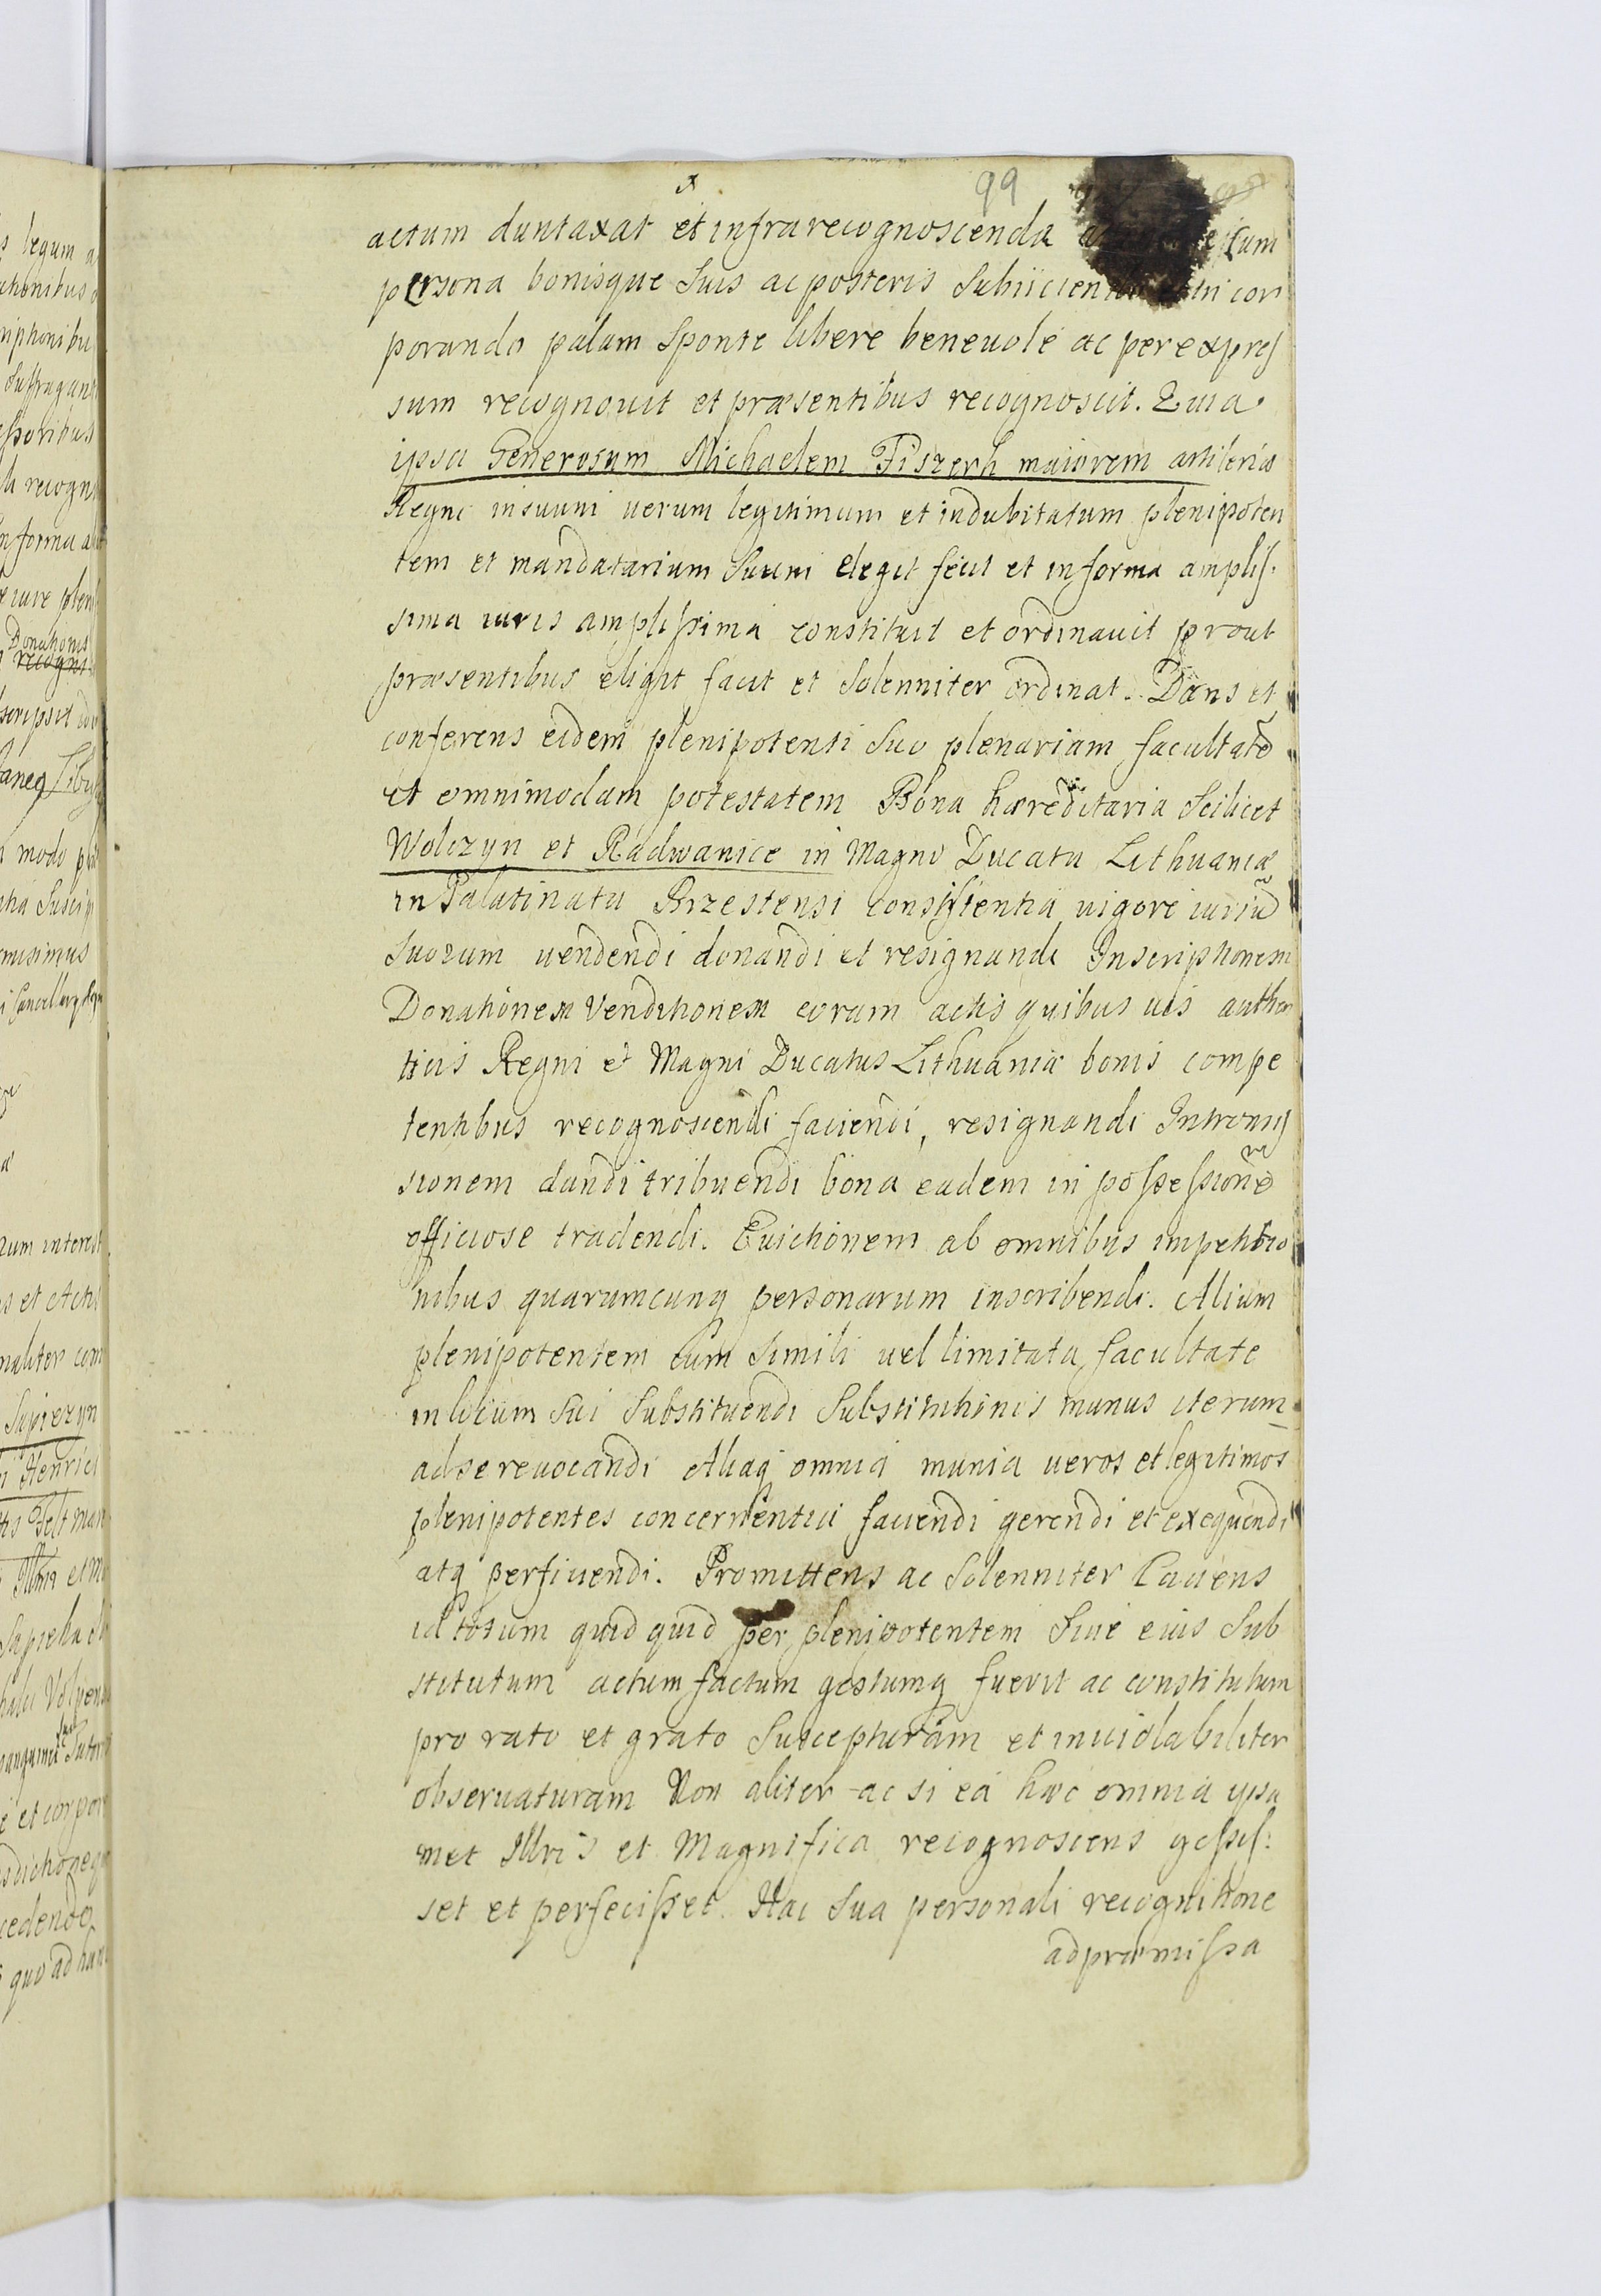 99
actum duntaxat et infrarecognoscenda
persona bonisque suis ac posteris subiicien in cor
porando palam sponte libere beneuole ac per expres
sum recognouit et præsentibus recognoscit. Quia
ipsa Generosum Michaelem Fiszerh maiorem artileriæ
Regni insuum uerum legitimum et indubitatum plenipoten
tem et mandatarium suum elegit fecit et in forma amplis
sima iuris amplissima constituit et ordinauit prout
præsentibus eligit facit et solenniter ordinat. Dans et
conferens eidem plenipotenti suo plenariam facultatē
et omnimodam potestatem Bona hæreditaria scilicet
Wolczyn et Radwanice in Magno Ducatu Lithuaniæ
in Palatinatu Brzestensi consistentia uigore iuriū
suorum uendendi donandi et resignandi Inscriptionem
Donationem Venditionem coram actis quibus uis authen
ticis Regni et Magni Ducatus Lithuaniæ bonis compe
tentibus recognoscendi faciendi, resignandi Intromis
sionem dandi tribuendi bona eadem in possessionē
officiose tradendi. Euictionem ab omnibus impetitio
nibus quarumcunq personarum inscribendi. Alium
plenipotentem cum simili uel limitata facultate
in locum sui substituendi substitutionis munus iterum
ad se reuocandi Aliaq omnia munia ueros et legitimos
plenipotentes concernentia faciendi gerendi et exequendi
atq perficiendi. Promittens ac solenniter Cauens
id totum quid quid per plenipotentem siue eius sub
stitutum actum factum gestumq fuerit ac constitutum
pro rato et grato suscepturam et inuiolabiliter
obseruaturam Non aliter ac si ea hæc omnia ipsa
met Illris et Magnifica recognoscens gessis
set et perfecisset. Hac sua personali recognitione
ad præmissa